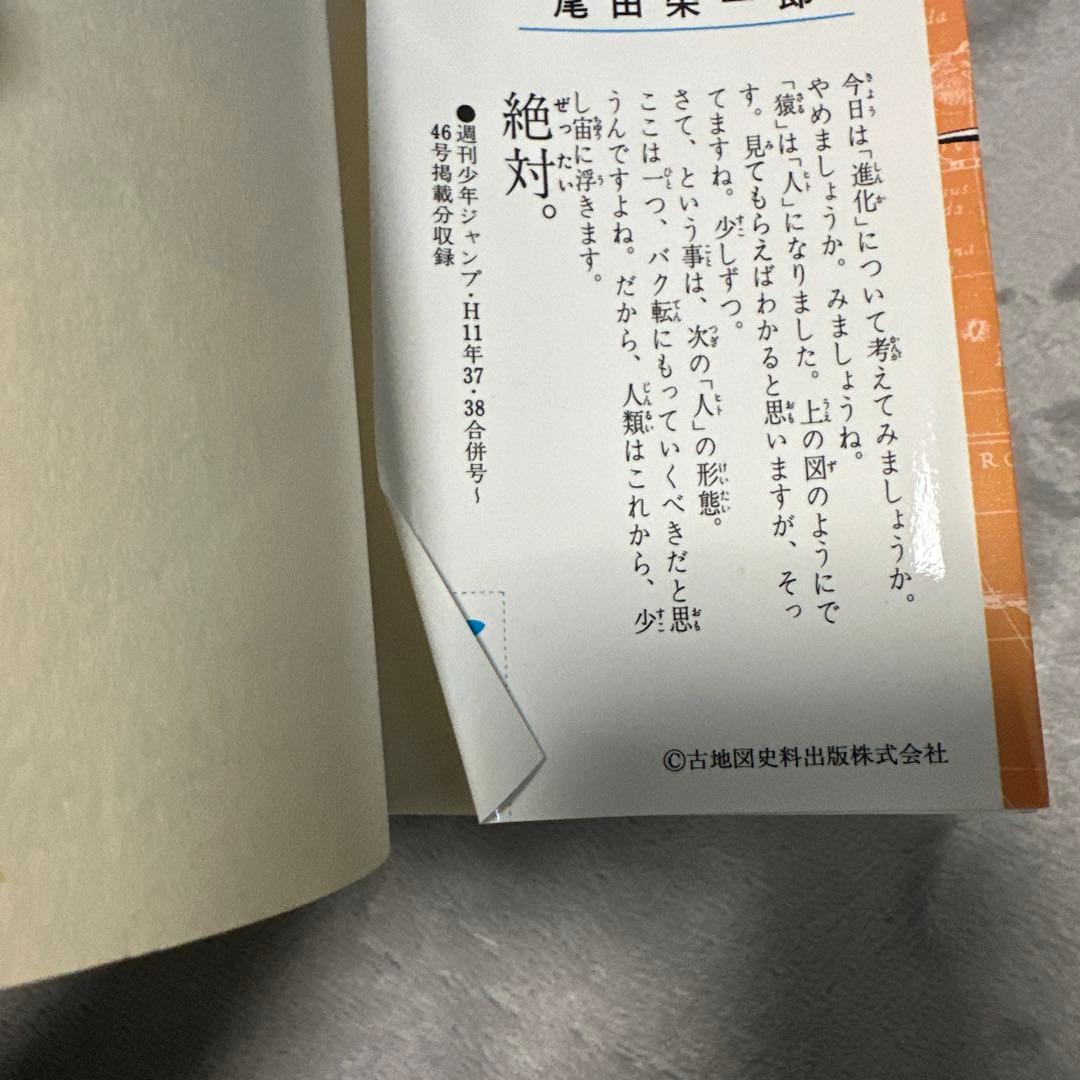 尾田栄一郎
今日は「進化」について考えてみましょうか。
やめましょうか。みましょうね。
「猿」は「人」になりました。上の図のようにで
す。見てもらえばわかると思いますが、そっ
てますね。少しずつ。
さて、という事は、次の「人」の形態。
ここは一つ、バク転にもっていくべきだと思
うんですよね。だから、人類はこれから、少
し宙に浮きます。
絶対。
●週刊少年ジャンプ・H11年37・38合併号〜
46号掲載分収録
©古地図史料出版株式会社